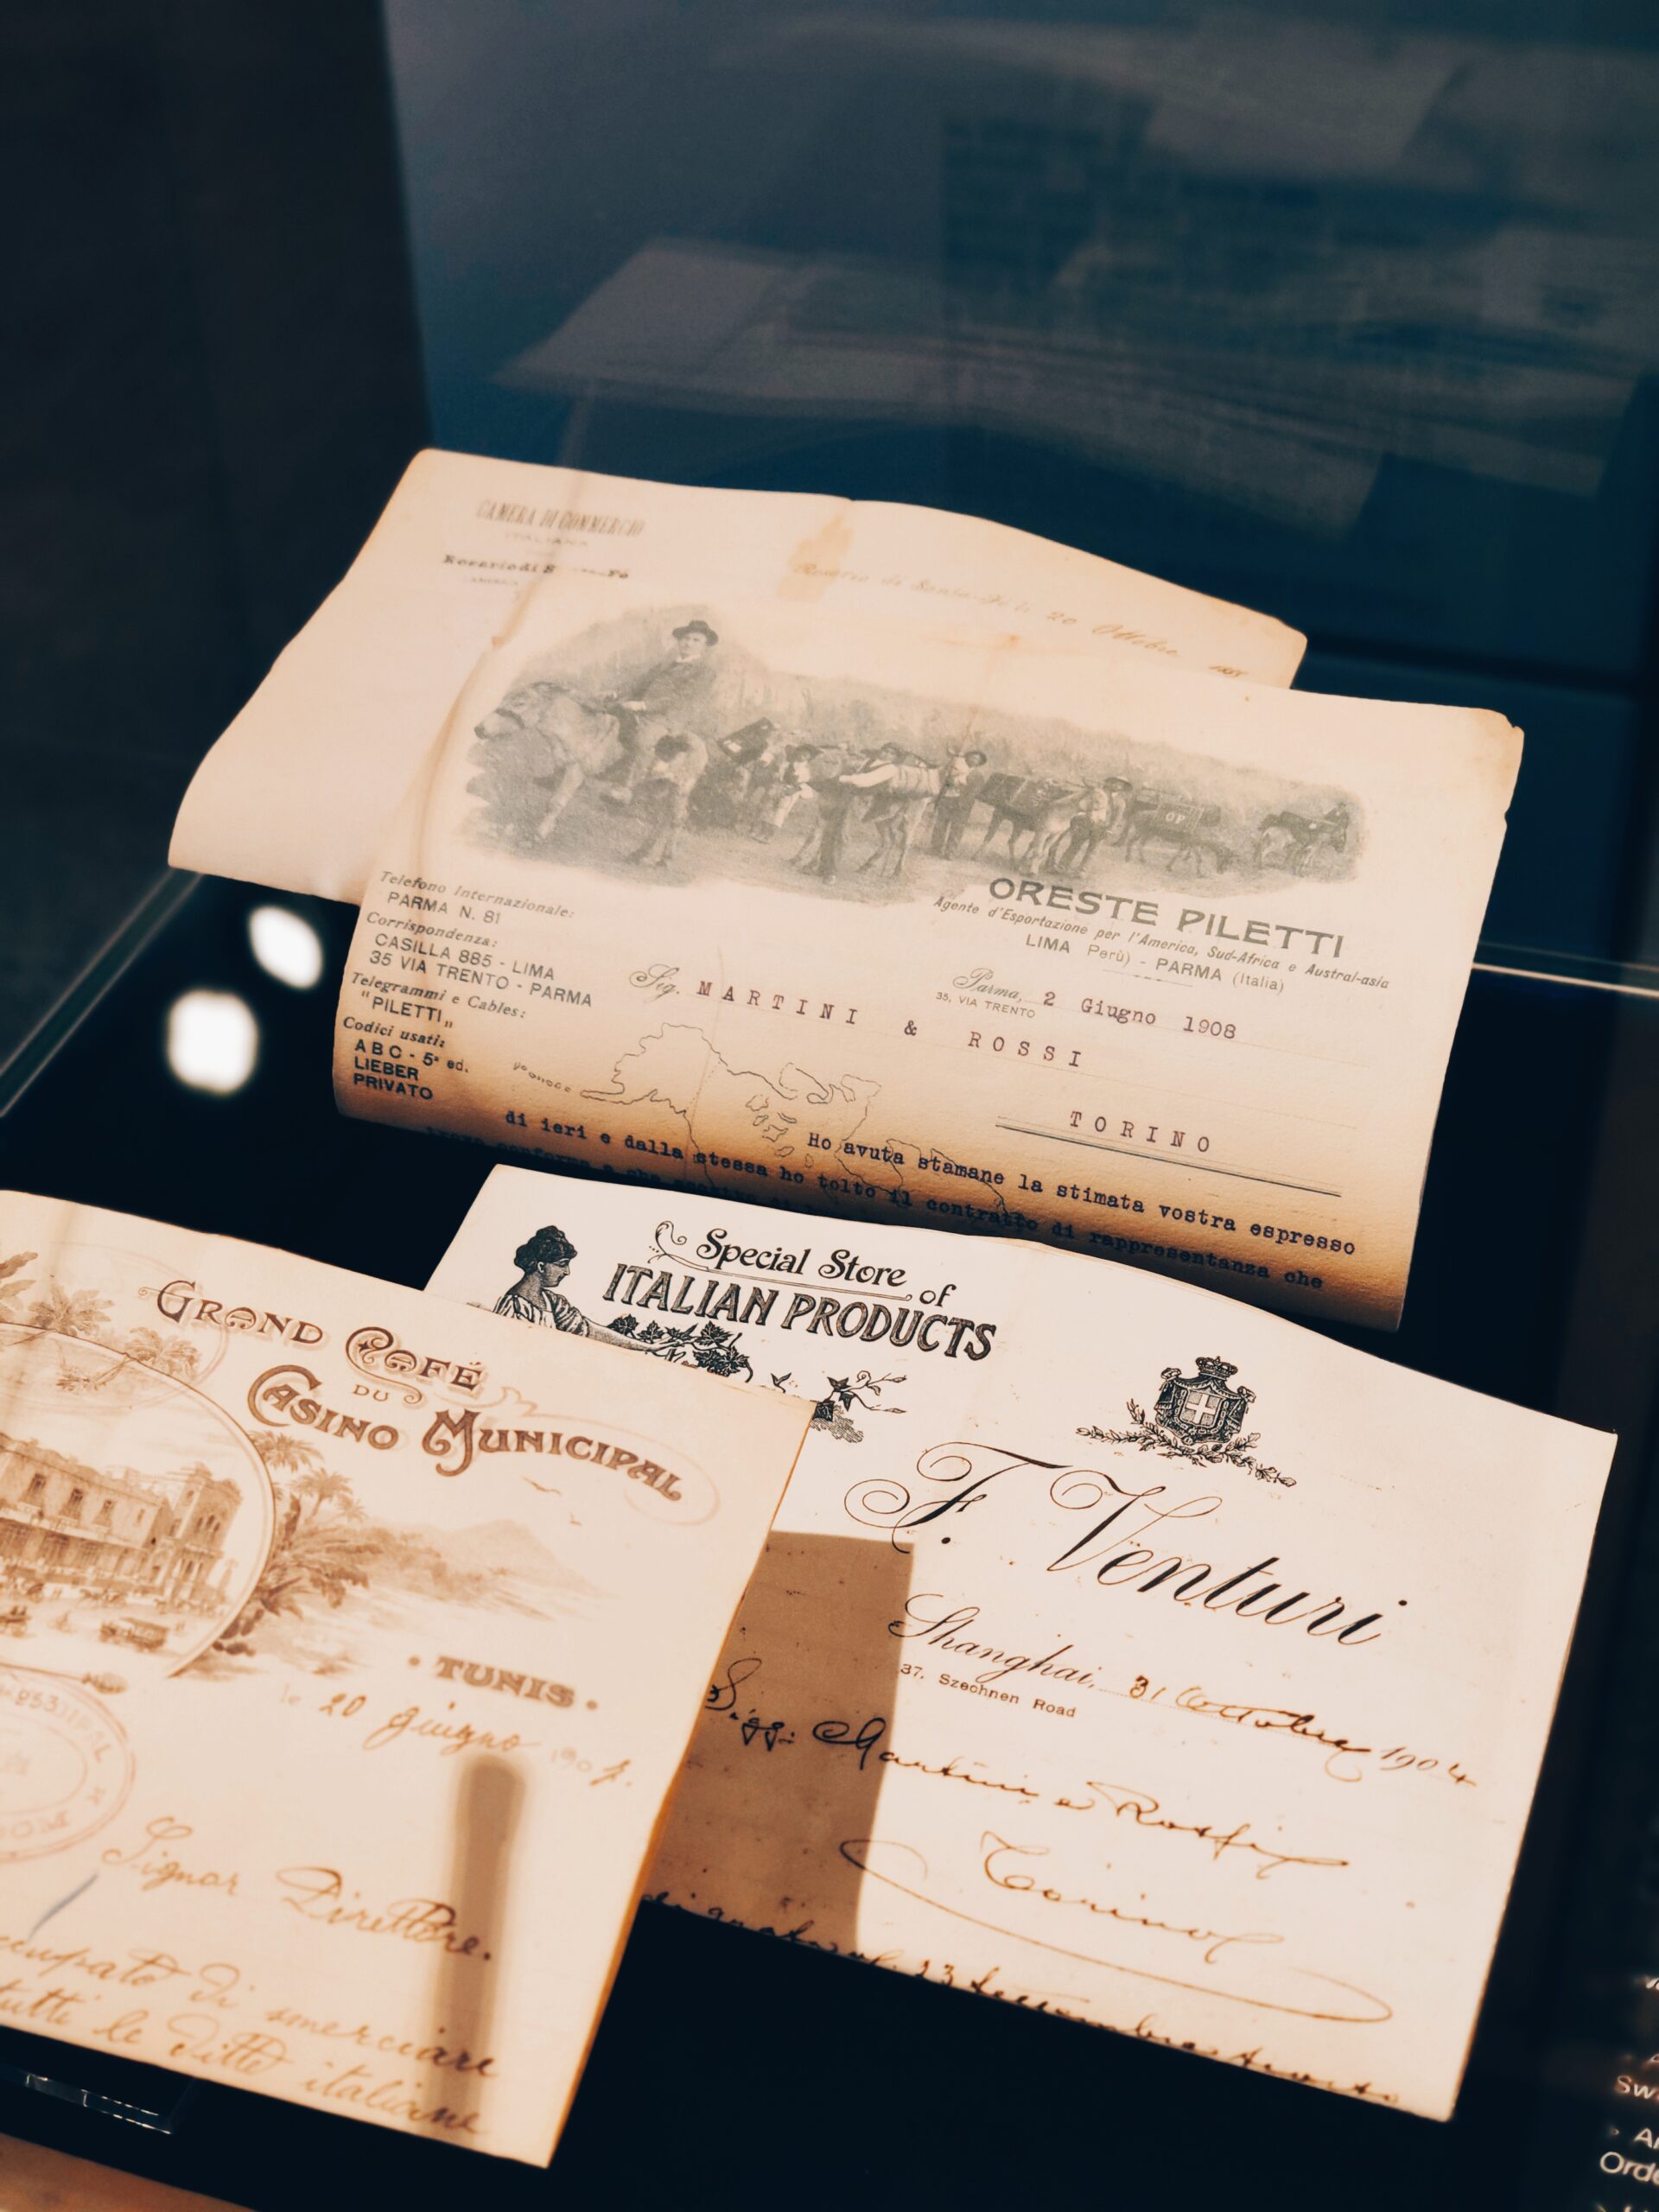 CAMERA DI COMMERCIO
ITALIANA
Rosario di S Fé
Rosario di Santa Fé li 20 Ottobre
ORESTE PILETTI
Agente d'Esportazione per l'America, Sud-Africa e Austral-asia
LIMA Perù) - PARMA (Italia)
Telefono Internazionale:
PARMA N. 81
Corrispondenza:
CASILLA 885 - LIMA
35 VIA TRENTO - PARMA
Telegrammi e Cables:
"PILETTI„
Codici usati:
A B C - 5ª ed.
LIEBER
PRIVATO
Parma, 2 Giugno 1908
35, VIA TRENTO
Sig. MARTINI & ROSSI
TORINO
Ho avuta stamane la stimata vostra espresso
di ieri e dalla stessa ho tolto il contratto di rappresentanza che
Special Store of
ITALIAN PRODUCTS
F. Venturi
Shanghai, 31 Ottobre 1904
37, Szechnen Road
Sigg: Martini e Rossi
Torino
23 Settembre
GRAND CAFÉ
DU
CASINO MUNICIPAL
• TUNIS •
le 20 giugno 190
Signor Direttore.
di smerciare
tutti le ditte italiane